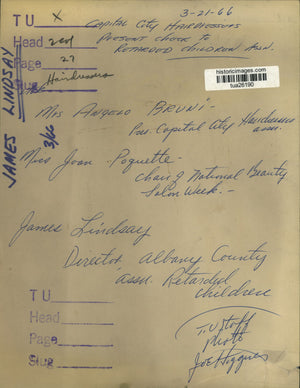 3-21-66
TU X
Capital City Hairdressers
Present Check to
Retarded Children Assn.
Head 2 col
Page 27
Slug Hairdressers
historicimages.com
tua26190
JAMES LINDSAY
3/66
Mrs Angelo "Bruni" -
Pres. Capital City Hairdressers
assn.
Miss Joan Poquette -
Chair of National Beauty
Salon Week. -
James Lindsay
Director Albany County
assn. Retarded
Children
TU
Head
Page
Slug
T.U Staff
Photo
Joe Higgins